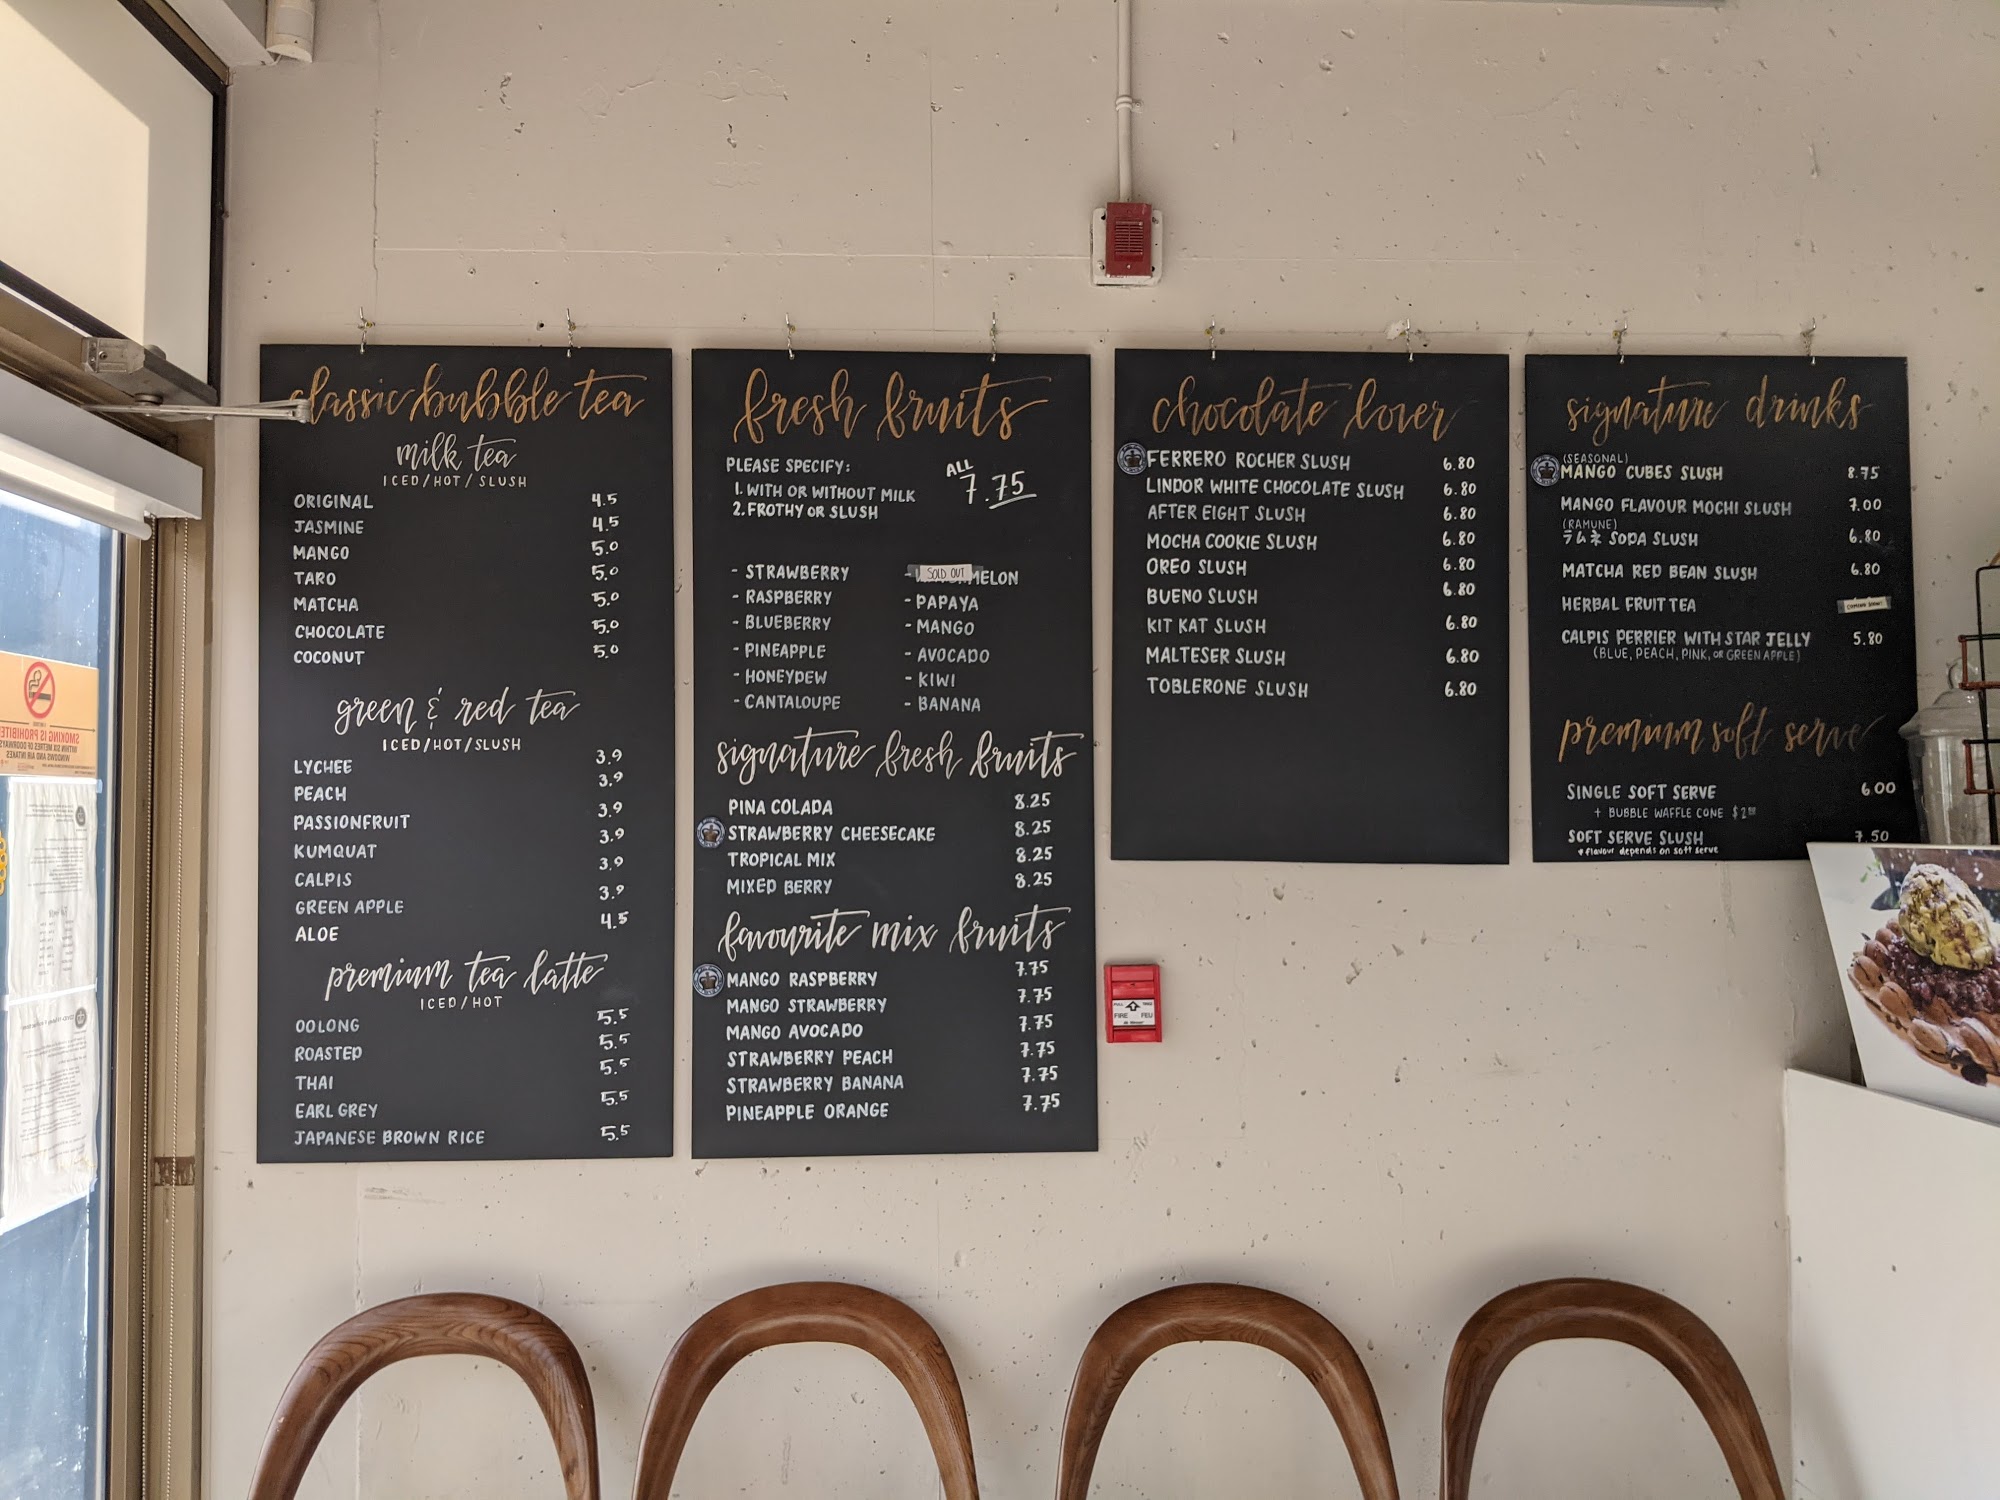 classic bubble tea
milk tea
ICED/HOT/SLUSH
ORIGINAL 4.5
JASMINE 4.5
MANGO 5.0
TARO 5.0
MATCHA 5.0
CHOCOLATE 5.0
COCONUT 5.0
green & red tea
ICED/HOT/SLUSH
LYCHEE 3.9
PEACH 3.9
PASSIONFRUIT 3.9
KUMQUAT 3.9
CALPIS 3.9
GREEN APPLE 3.9
ALOE 4.5
premium tea latte
ICED/HOT
OOLONG 5.5
ROASTED 5.5
THAI 5.5
EARL GREY 5.5
JAPANESE BROWN RICE 5.5
fresh fruits
PLEASE SPECIFY:
1. WITH OR WITHOUT MILK
2. FROTHY OR SLUSH
ALL
7.75
- STRAWBERRY
- RASPBERRY
- BLUEBERRY
- PINEAPPLE
- HONEYDEW
- CANTALOUPE
SOLD OUT
- PAPAYA
- MANGO
- AVOCADO
- KIWI
- BANANA
signature fresh fruits
PINA COLADA 8.25
STRAWBERRY CHEESECAKE 8.25
TROPICAL MIX 8.25
MIXED BERRY 8.25
favourite mix fruits
MANGO RASPBERRY 7.75
MANGO STRAWBERRY 7.75
MANGO AVOCADO 7.75
STRAWBERRY PEACH 7.75
STRAWBERRY BANANA 7.75
PINEAPPLE ORANGE 7.75
chocolate lover
FERRERO ROCHER SLUSH 6.80
LINDOR WHITE CHOCOLATE SLUSH 6.80
AFTER EIGHT SLUSH 6.80
MOCHA COOKIE SLUSH 6.80
OREO SLUSH 6.80
BUENO SLUSH 6.80
KIT KAT SLUSH 6.80
MALTESER SLUSH 6.80
TOBLERONE SLUSH 6.80
signature drinks
(SEASONAL)
MANGO CUBES SLUSH 8.75
MANGO FLAVOUR MOCHI SLUSH 7.00
(RAMUNE)
ラムネ SODA SLUSH 6.80
MATCHA RED BEAN SLUSH 6.80
HERBAL FRUIT TEA COMING SOON!
CALPIS PERRIER WITH STAR JELLY 5.80
(BLUE, PEACH, PINK, OR GREEN APPLE)
premium soft serve
SINGLE SOFT SERVE 6.00
+ BUBBLE WAFFLE CONE $2.00
SOFT SERVE SLUSH 7.50
* flavour depends on soft serve
FIRE FEU
SMOKING IS PROHIBITED
WITHIN SIX METRES OF DOORWAYS
WINDOWS AND AIR INTAKES